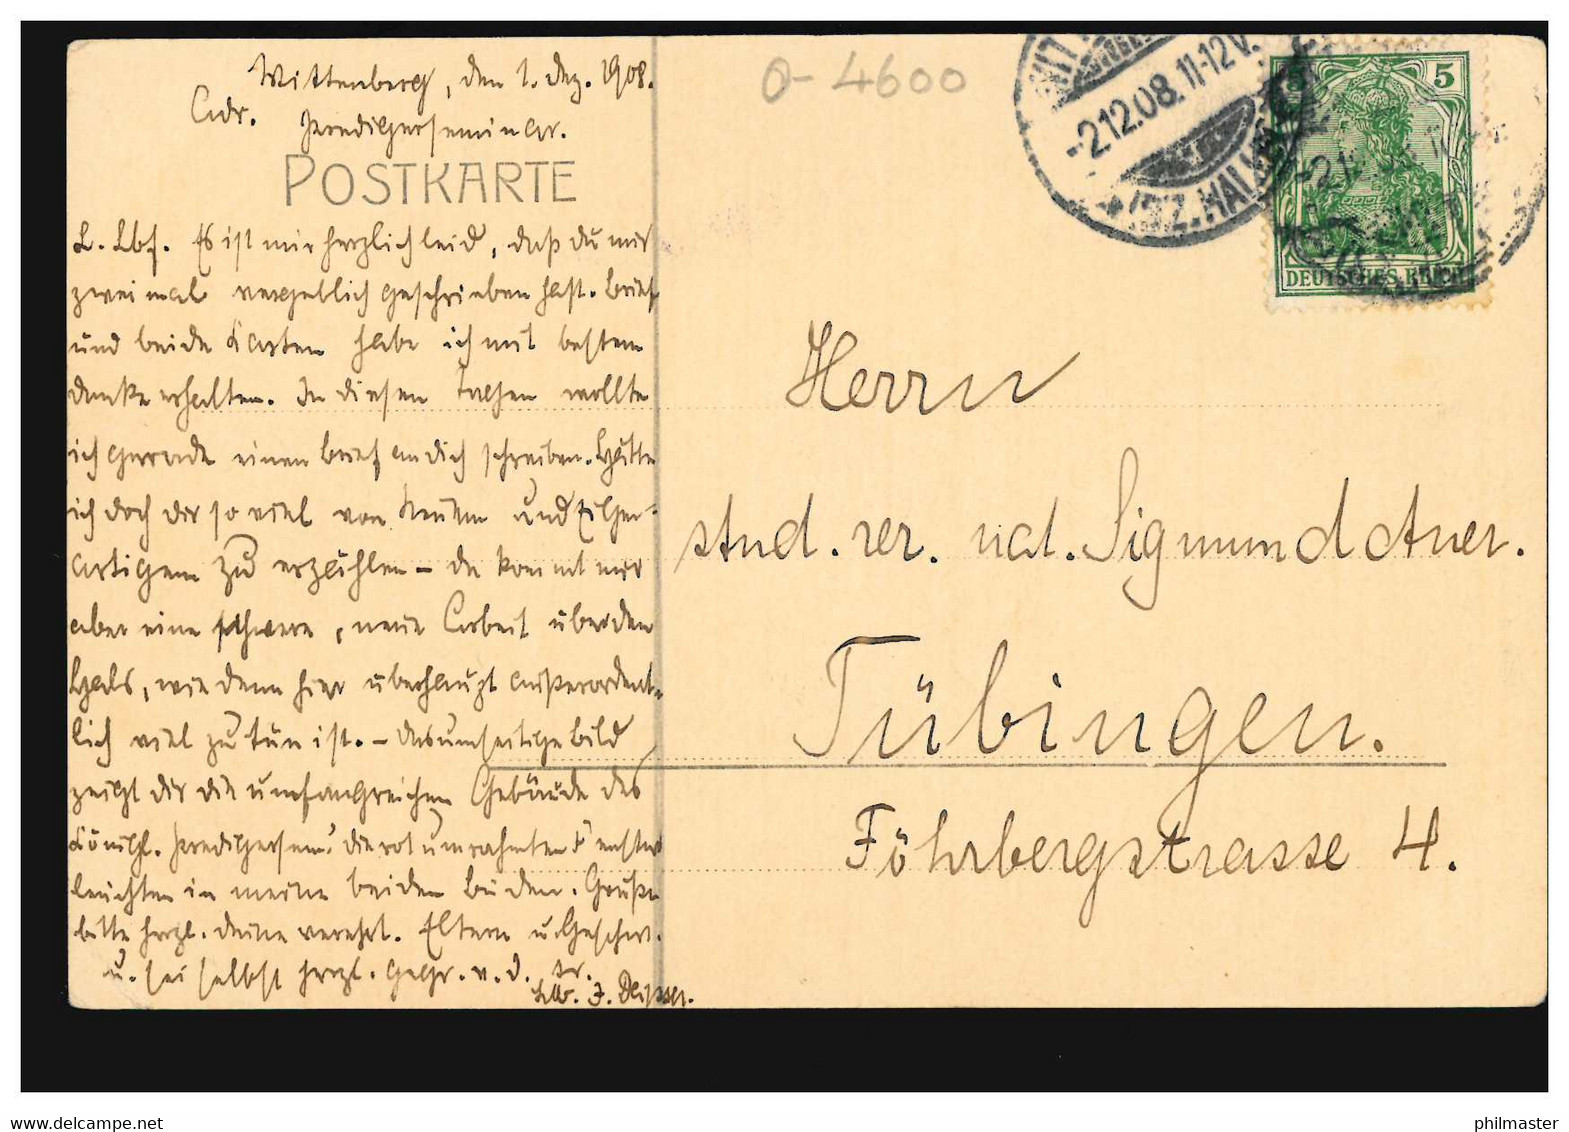 Wittenberg, den 1. Dez. 1908.
Adr. Predigerseminar.
POSTKARTE
L. Lbf. Es ist mir herzlich leid, daß du mir
zweimal vergeblich geschrieben hast. Brief
und beide Karten habe ich mit bestem
Danke erhalten. In diesen Tagen wollte
ich gerade einen Brief an dich schreiben. Hätte
ich doch dir so viel von Neuem und Eigen-
artigem zu erzählen – da kommt mir
aber eine schwere, neue Arbeit über den
Hals, wie denn hier überhaupt außerordent-
lich viel zu tun ist. – Das umseitige Bild
zeigt dir die umfangreichen Gebäude des
Königl. Predigersem. die rot umrahmten Fenster
leuchten in meine beiden Buden. Grüße
bitte herzl. deine verehrt. Eltern u. Geschw.
u. sei selbst herzl. gegr. v. d. tr.
Lbb. J.
0-4600
-2.12.08. 11-12V.
BZ. HALLE
5
DEUTSCHES REICH
Herrn
stud. rer. nat. Sigmund Auer.
Tübingen.
Föhrbergstrasse 4.
philmaster